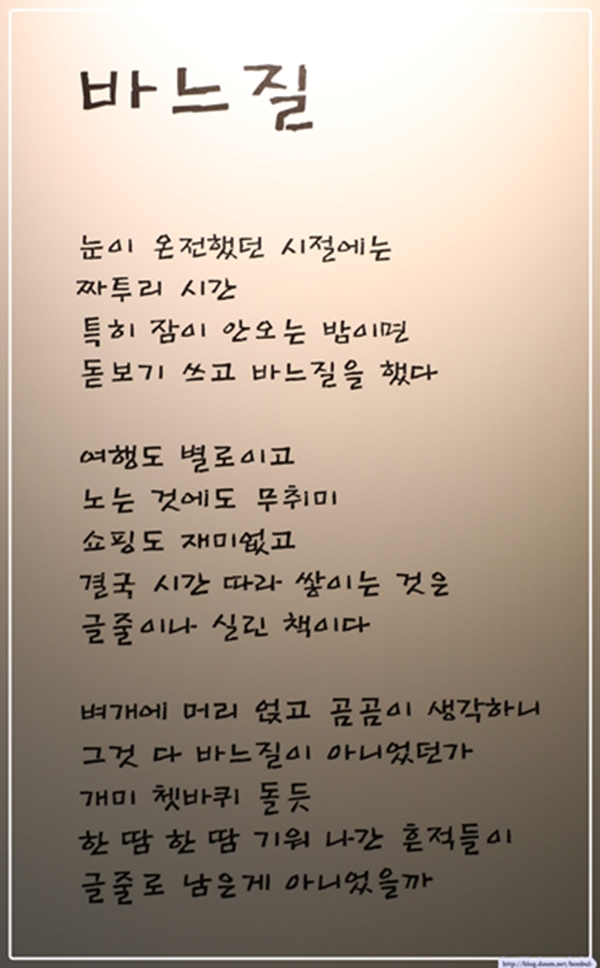 바느질
눈이 온전했던 시절에는
짜투리 시간
특히 잠이 안오는 밤이면
돋보기 쓰고 바느질을 했다
여행도 별로이고
노는 것에도 무취미
쇼핑도 재미없고
결국 시간 따라 쌓이는 것은
글줄이나 실린 책이다
벼개에 머리 얹고 곰곰이 생각하니
그것 다 바느질이 아니었던가
개미 쳇바퀴 돌듯
한 땀 한 땀 기워 나간 흔적들이
글줄로 남은게 아니었을까